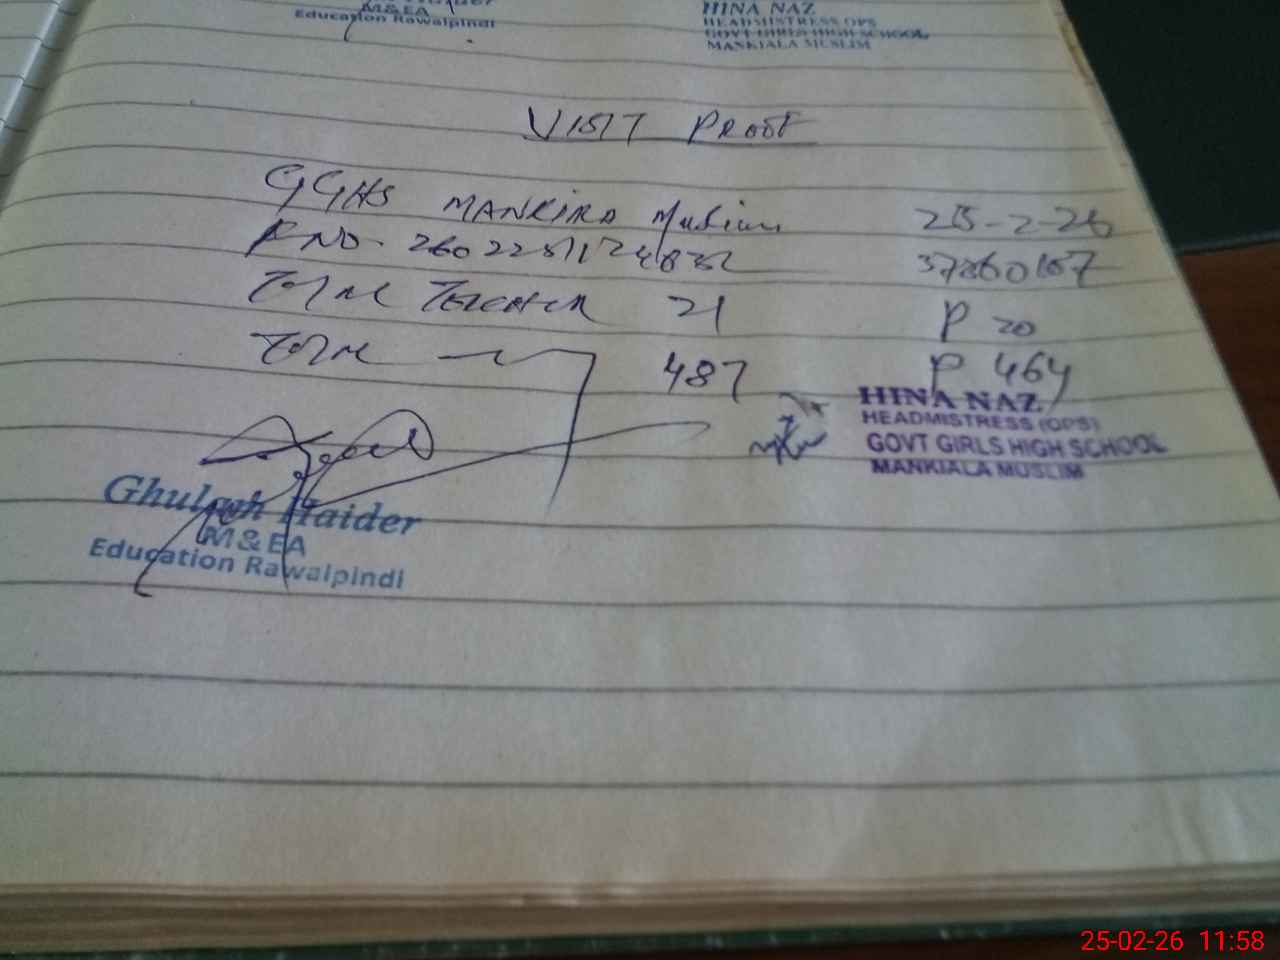 M&EA
Education Rawalpindi
HINA NAZ
HEADMISTRESS OPS
GOVT GIRLS HIGH SCHOOL
MANKIALA MUSLIM
VISIT PROOF
GGHS MANKIRA Muslim 25-2-26
R NO- 37360167
Total Teacher 21 P 20
Total 487 P 464
HINA NAZ
HEADMISTRESS (OPS)
GOVT GIRLS HIGH SCHOOL
MANKIALA MUSLIM
Ghulam Haider
M&EA
Education Rawalpindi
25-02-26 11:58